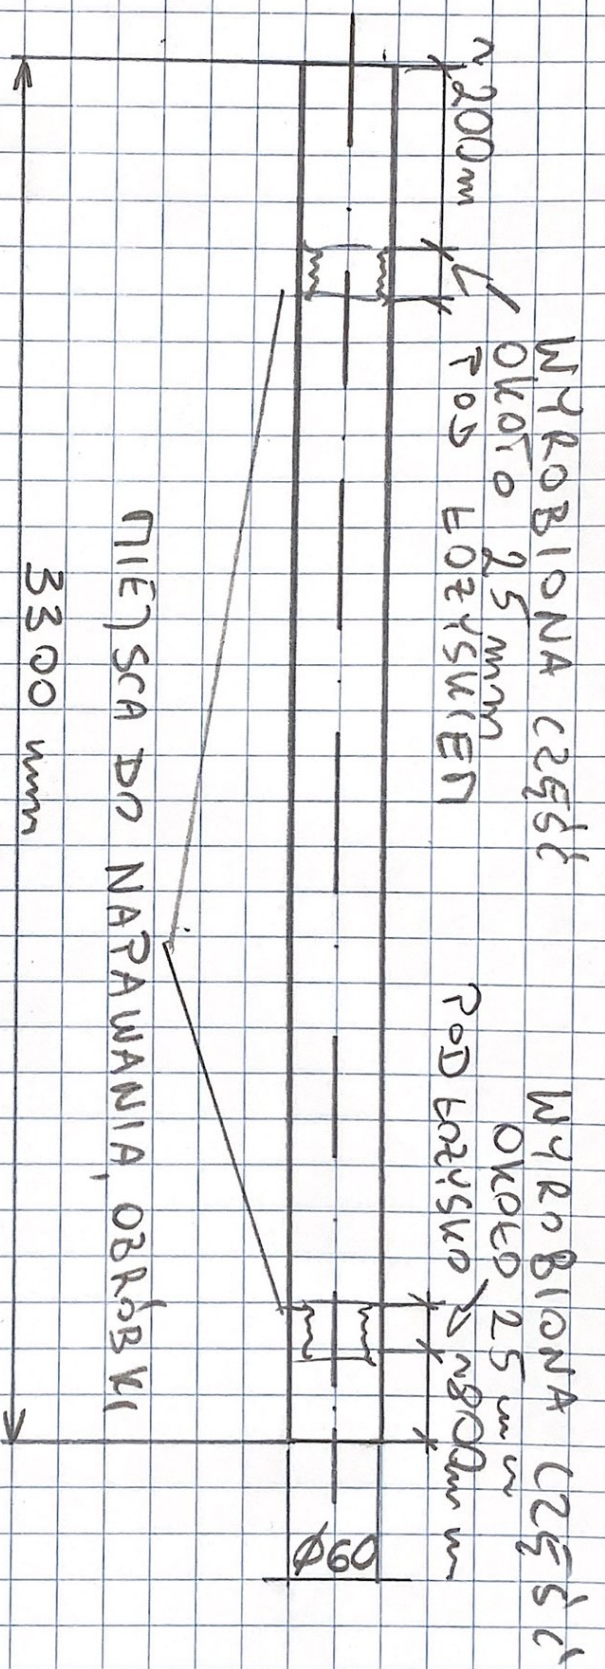 WYROBIONA CZĘŚĆ
OKOŁO 25 mm
POD ŁOZYSKIEM
~200m
WYROBIONA CZĘŚĆ
OKOŁO 25 mm
POD ŁOZYSKO
~800mm
Ø60
MIEJSCA DO NAPAWANIA, OBRÓBKI
3300 mm